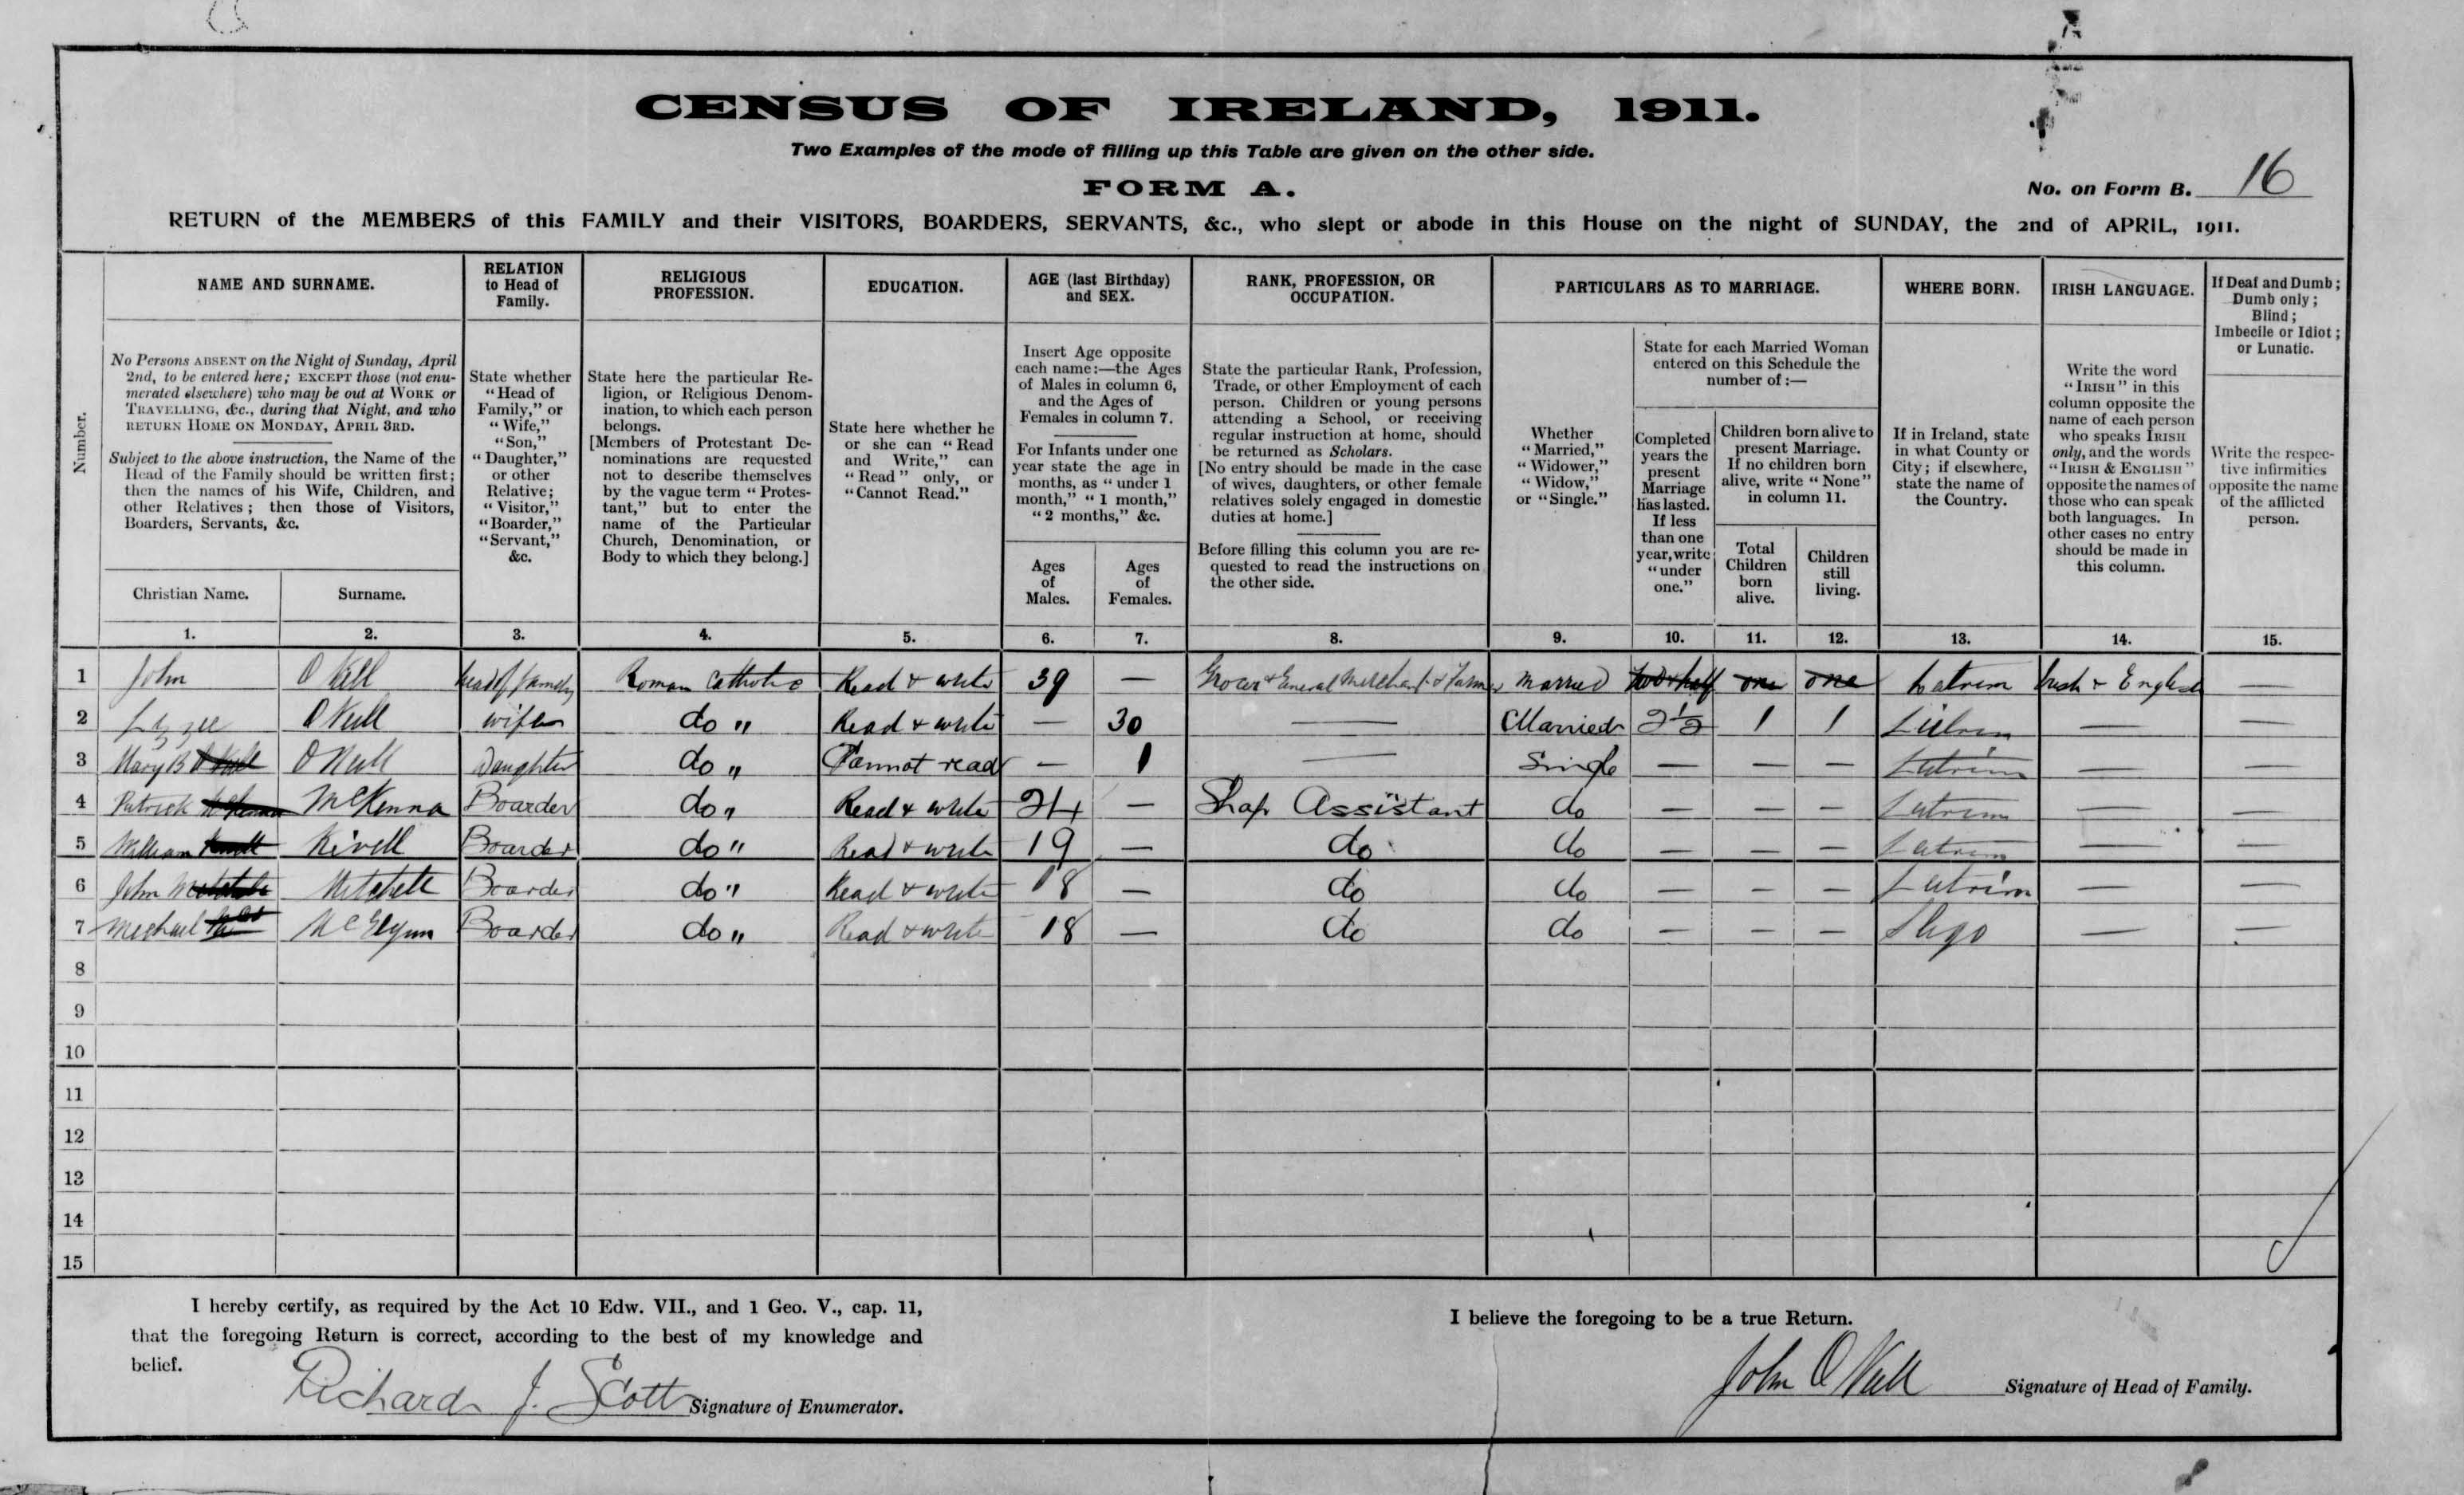 CENSUS OF IRELAND, 1911.
Two Examples of the mode of filling up this Table are given on the other side.
FORM A.
No. on Form B. 16
RETURN of the MEMBERS of this FAMILY and their VISITORS, BOARDERS, SERVANTS, &c., who slept or abode in this House on the night of SUNDAY, the 2nd of APRIL, 1911.
Number.
NAME AND SURNAME.
No Persons ABSENT on the Night of Sunday, April
2nd, to be entered here; EXCEPT those (not enu-
merated elsewhere) who may be out at WORK or
TRAVELLING, &c., during that Night, and who
RETURN HOME ON MONDAY, APRIL 3RD.
Subject to the above instruction, the Name of the
Head of the Family should be written first;
then the names of his Wife, Children, and
other Relatives; then those of Visitors,
Boarders, Servants, &c.
Christian Name.
Surname.
RELATION
to Head of
Family.
State whether
"Head of
Family," or
"Wife,"
"Son,"
"Daughter,"
or other
Relative;
"Visitor,"
"Boarder,"
"Servant,"
&c.
RELIGIOUS
PROFESSION.
State here the particular Re-
ligion, or Religious Denom-
ination, to which each person
belongs.
[Members of Protestant De-
nominations are requested
not to describe themselves
by the vague term "Protes-
tant," but to enter the
name of the Particular
Church, Denomination, or
Body to which they belong.]
EDUCATION.
State here whether he
or she can "Read
and Write," can
"Read" only, or
"Cannot Read."
AGE (last Birthday)
and SEX.
Insert Age opposite
each name:—the Ages
of Males in column 6,
and the Ages of
Females in column 7.
For Infants under one
year state the age in
months, as "under 1
month," "1 month,"
"2 months," &c.
Ages
of
Males.
Ages
of
Females.
RANK, PROFESSION, OR
OCCUPATION.
State the particular Rank, Profession,
Trade, or other Employment of each
person. Children or young persons
attending a School, or receiving
regular instruction at home, should
be returned as Scholars.
[No entry should be made in the case
of wives, daughters, or other female
relatives solely engaged in domestic
duties at home.]
Before filling this column you are re-
quested to read the instructions on
the other side.
PARTICULARS AS TO MARRIAGE.
Whether
"Married,"
"Widower,"
"Widow,"
or "Single."
State for each Married Woman
entered on this Schedule the
number of:—
Completed
years the
present
Marriage
has lasted.
If less
than one
year, write
"under
one."
Children born alive to
present Marriage.
If no children born
alive, write "None"
in column 11.
Total
Children
born
alive.
Children
still
living.
WHERE BORN.
If in Ireland, state
in what County or
City; if elsewhere,
state the name of
the Country.
IRISH LANGUAGE.
Write the word
"IRISH" in this
column opposite the
name of each person
who speaks IRISH
only, and the words
"IRISH & ENGLISH"
opposite the names of
those who can speak
both languages. In
other cases no entry
should be made in
this column.
If Deaf and Dumb;
Dumb only;
Blind;
Imbecile or Idiot;
or Lunatic.
Write the respec-
tive infirmities
opposite the name
of the afflicted
person.
1. 2. 3. 4. 5. 6. 7. 8. 9. 10. 11. 12. 13. 14. 15.
1 John O Neill head of family Roman Catholic Read & write 39 — Grocer & General Merchant & Farmer Married two & half one one Leitrim Irish & English —
2 Lizzie O Neill wife do " Read & write — 30 — Married 2 1/2 1 1 Leitrim — —
3 Mary B O Neill Daughter do " Cannot read — 1 — Single — — — Leitrim — —
4 Patrick McKenna Boarder do " Read & write 24 — Shop Assistant do — — — Leitrim — —
5 William Boarder do " Read & write 19 — do do — — — Leitrim — —
6 John Mitchell Boarder do " Read & write 18 — do do — — — Leitrim — —
7 Michael McGlynn Boarder do " Read & write 18 — do do — — — Sligo — —
8
9
10
11
12
13
14
15
I hereby certify, as required by the Act 10 Edw. VII., and 1 Geo. V., cap. 11,
that the foregoing Return is correct, according to the best of my knowledge and
belief.
Richard J. Scott Signature of Enumerator.
I believe the foregoing to be a true Return.
John O Neill Signature of Head of Family.